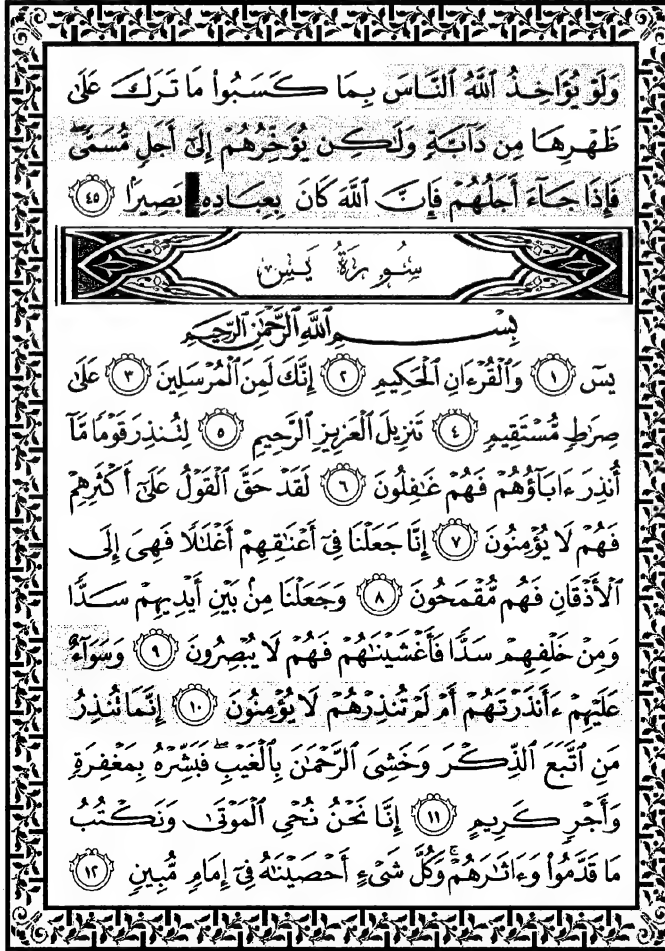 وَلَوْ يُؤَاخِذُ ٱللَّهُ ٱلنَّاسَ بِمَا كَسَبُوا۟ مَا تَرَكَ عَلَىٰ
ظَهْرِهَا مِن دَآبَّةٍ وَلَـٰكِن يُؤَخِّرُهُمْ إِلَىٰٓ أَجَلٍ مُّسَمًّى ۖ
فَإِذَا جَآءَ أَجَلُهُمْ فَإِنَّ ٱللَّهَ كَانَ بِعِبَادِهِۦ بَصِيرًۢا ٤٥
سُورَةُ يَسٓ
بِسْمِ ٱللَّهِ ٱلرَّحْمَـٰنِ ٱلرَّحِيمِ
يسٓ ١ وَٱلْقُرْءَانِ ٱلْحَكِيمِ ٢ إِنَّكَ لَمِنَ ٱلْمُرْسَلِينَ ٣ عَلَىٰ
صِرَٰطٍ مُّسْتَقِيمٍ ٤ تَنزِيلَ ٱلْعَزِيزِ ٱلرَّحِيمِ ٥ لِتُنذِرَ قَوْمًا مَّآ
أُنذِرَ ءَابَآؤُهُمْ فَهُمْ غَـٰفِلُونَ ٦ لَقَدْ حَقَّ ٱلْقَوْلُ عَلَىٰٓ أَكْثَرِهِمْ
فَهُمْ لَا يُؤْمِنُونَ ٧ إِنَّا جَعَلْنَا فِىٓ أَعْنَـٰقِهِمْ أَغْلَـٰلًا فَهِىَ إِلَى
ٱلْأَذْقَانِ فَهُم مُّقْمَحُونَ ٨ وَجَعَلْنَا مِنۢ بَيْنِ أَيْدِيهِمْ سَدًّا
وَمِنْ خَلْفِهِمْ سَدًّا فَأَغْشَيْنَـٰهُمْ فَهُمْ لَا يُبْصِرُونَ ٩ وَسَوَآءٌ
عَلَيْهِمْ ءَأَنذَرْتَهُمْ أَمْ لَمْ تُنذِرْهُمْ لَا يُؤْمِنُونَ ١٠ إِنَّمَا تُنذِرُ
مَنِ ٱتَّبَعَ ٱلذِّكْرَ وَخَشِىَ ٱلرَّحْمَـٰنَ بِٱلْغَيْبِ ۖ فَبَشِّرْهُ بِمَغْفِرَةٍ
وَأَجْرٍ كَرِيمٍ ١١ إِنَّا نَحْنُ نُحْىِ ٱلْمَوْتَىٰ وَنَكْتُبُ
مَا قَدَّمُوا۟ وَءَاثَـٰرَهُمْ ۚ وَكُلَّ شَىْءٍ أَحْصَيْنَـٰهُ فِىٓ إِمَامٍ مُّبِينٍ ١٢